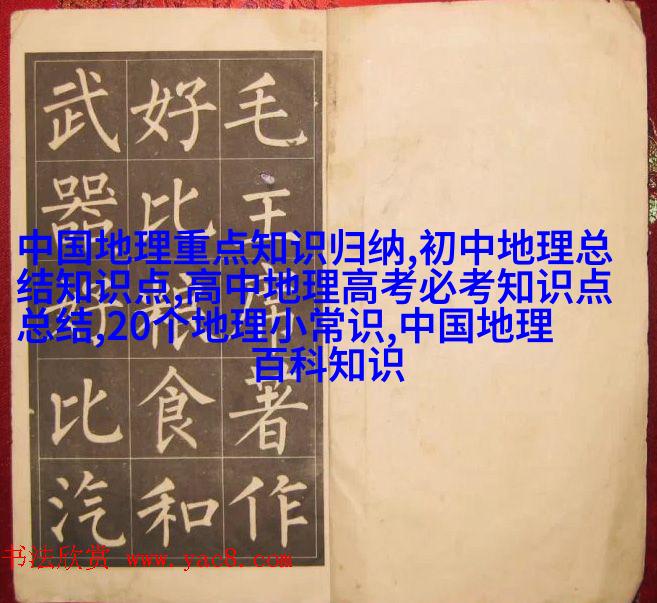 毛主席著作
好比粮食和
武器好比汽
中国地理重点知识归纳,初中地理总
结知识点,高中地理高考必考知识点
总结,20个地理小常识,中国地理
百科知识
书法欣赏 www.yac8.com